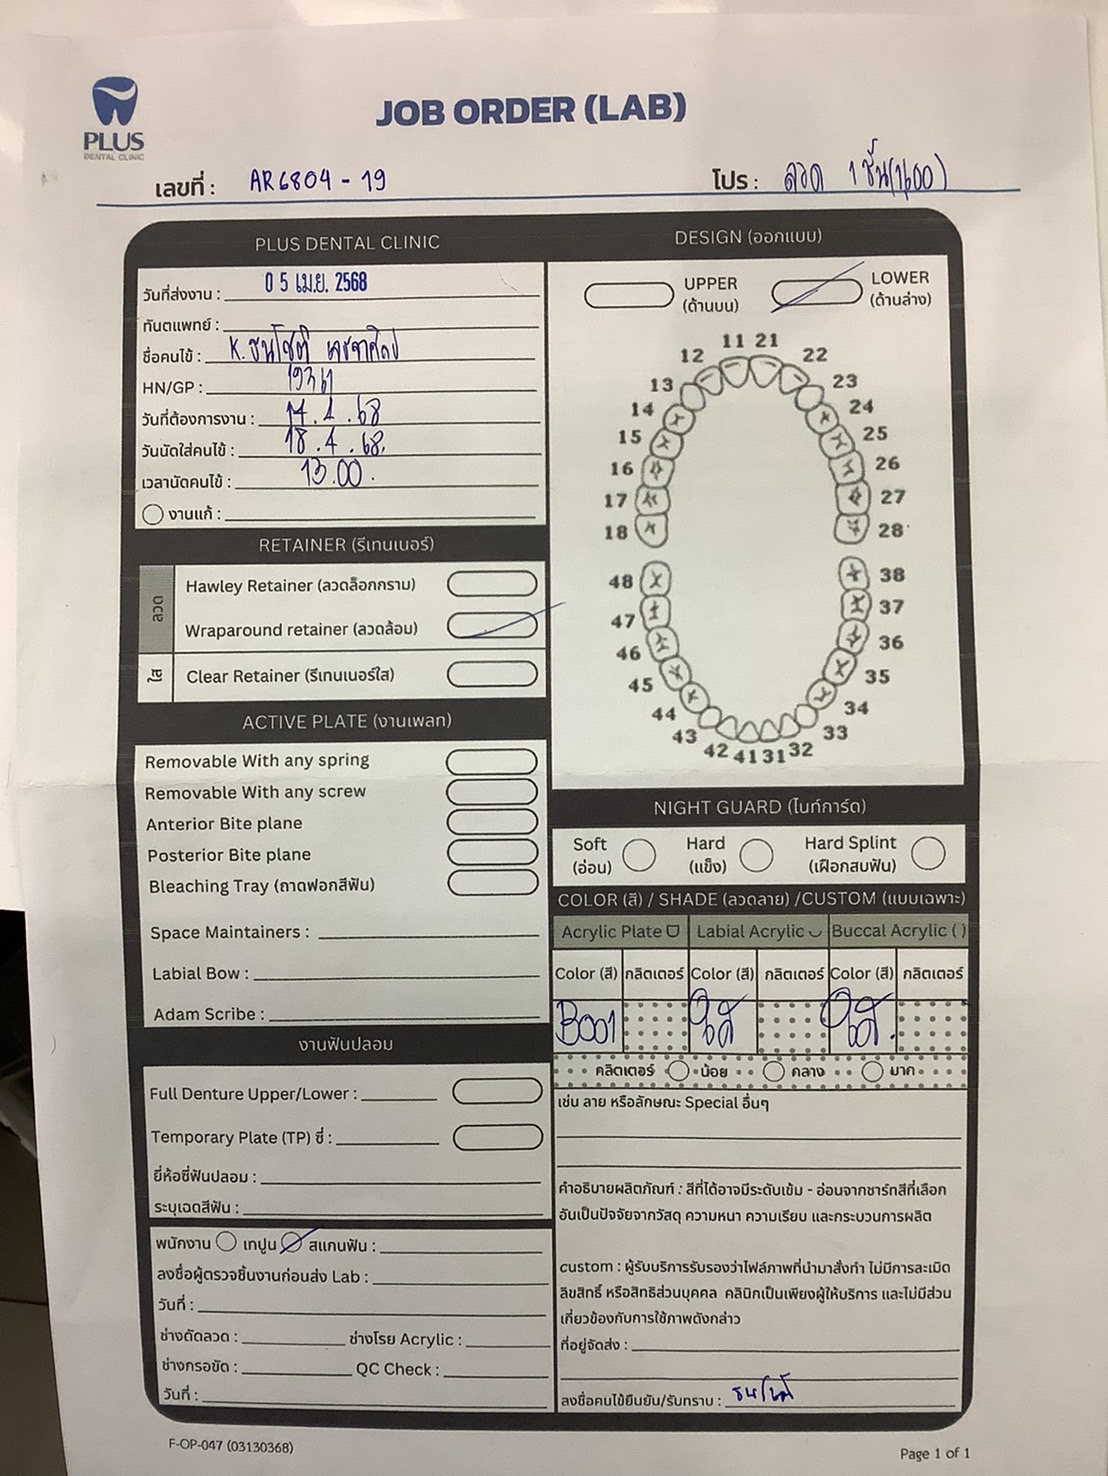 PLUS
DENTAL CLINIC
JOB ORDER (LAB)
เลขที่ : AR6804 - 19
โปร : ลวด 1 ชิ้น(1,600)
PLUS DENTAL CLINIC
วันที่ส่งงาน : 05 เม.ย. 2568
ทันตแพทย์ :
ชื่อคนไข้ : K. ธนโชติ
HN/GP : 19361
วันที่ต้องการงาน : 17.4.68
วันนัดใส่คนไข้ : 18.4.68.
เวลานัดคนไข้ : 13.00.
งานแก้ :
RETAINER (รีเทนเนอร์)
ลวด
Hawley Retainer (ลวดล็อกกราม)
Wraparound retainer (ลวดล้อม)
ใส
Clear Retainer (รีเทนเนอร์ใส)
ACTIVE PLATE (งานเพลท)
Removable With any spring
Removable With any screw
Anterior Bite plane
Posterior Bite plane
Bleaching Tray (ถาดฟอกสีฟัน)
Space Maintainers :
Labial Bow :
Adam Scribe :
งานฟันปลอม
Full Denture Upper/Lower :
Temporary Plate (TP) ซี่ :
ยี่ห้อซี่ฟันปลอม :
ระบุเฉดสีฟัน :
พนักงาน เทปูน สแกนฟัน :
ลงชื่อผู้ตรวจชิ้นงานก่อนส่ง Lab :
วันที่ :
ช่างดัดลวด : ช่างโรย Acrylic :
ช่างกรอขัด : QC Check :
วันที่ :
DESIGN (ออกแบบ)
UPPER
(ด้านบน)
LOWER
(ด้านล่าง)
11 21
12 22
13 23
14 24
15 25
16 26
17 27
18 28
48 38
47 37
46 36
45 35
44 34
43 33
42 41 31 32
NIGHT GUARD (ไนท์การ์ด)
Soft
(อ่อน)
Hard
(แข็ง)
Hard Splint
(เฝือกสบฟัน)
COLOR (สี) / SHADE (ลวดลาย) /CUSTOM (แบบเฉพาะ)
Acrylic Plate Labial Acrylic Buccal Acrylic ( )
Color (สี) กลิตเตอร์ Color (สี) กลิตเตอร์ Color (สี) กลิตเตอร์
B001 ใส ใส.
กลิตเตอร์ น้อย กลาง มาก
เช่น ลาย หรือลักษณะ Special อื่นๆ
คำอธิบายผลิตภัณฑ์ : สีที่ได้อาจมีระดับเข้ม - อ่อนจากชาร์ทสีที่เลือก
อันเป็นปัจจัยจากวัสดุ ความหนา ความเรียบ และกระบวนการผลิต
custom : ผู้รับบริการรับรองว่าไฟล์ภาพที่นำมาสั่งทำ ไม่มีการละเมิด
ลิขสิทธิ์ หรือสิทธิส่วนบุคคล คลินิกเป็นเพียงผู้ให้บริการ และไม่มีส่วน
เกี่ยวข้องกับการใช้ภาพดังกล่าว
ที่อยู่จัดส่ง :
ลงชื่อคนไข้ยืนยัน/รับทราบ : ธนโชติ
F-OP-047 (03130368)
Page 1 of 1